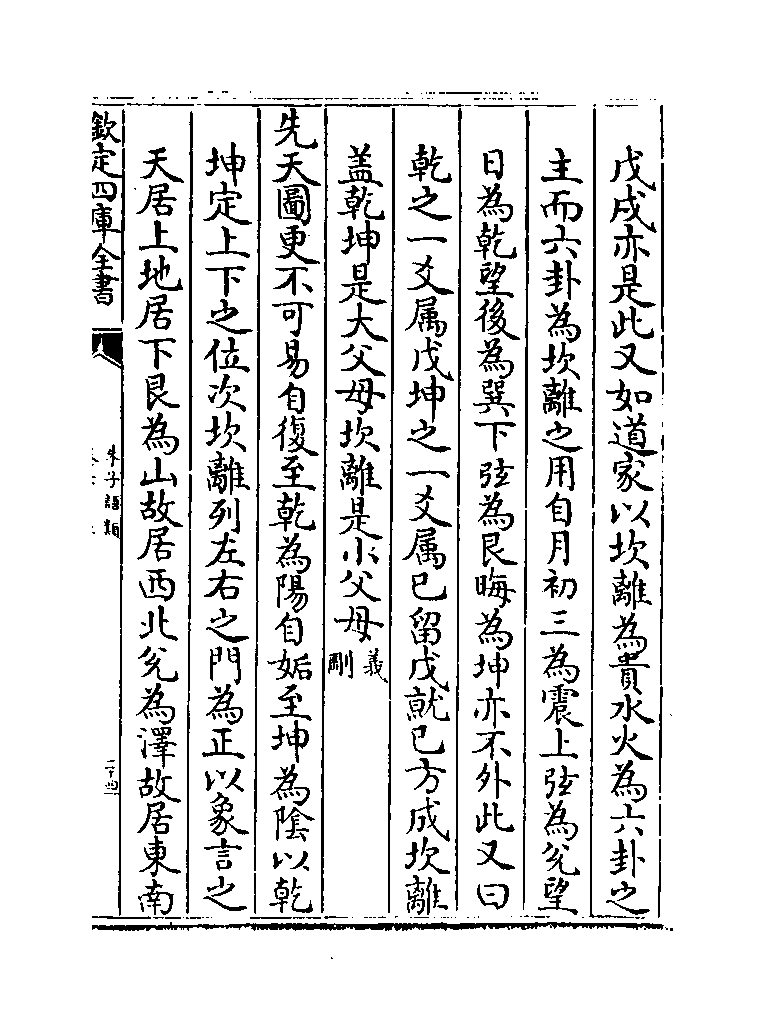 戊戌亦是此又如道家以坎離為貴水火為六卦之
主而六卦為坎離之用自月初三為震上弦為兌望
日為乾望後為巽下弦為艮晦為坤亦不外此又曰
乾之一爻属戊坤之一爻属己留戊就己方成坎離
盖乾坤是大父母坎離是小父母義剛
先天圖更不可易自復至乾為陽自姤至坤為陰以乾
坤定上下之位次坎離列左右之門為正以象言之
天居上地居下艮為山故居西北兌為澤故居東南
欽定四庫全書
朱子語類
二十四